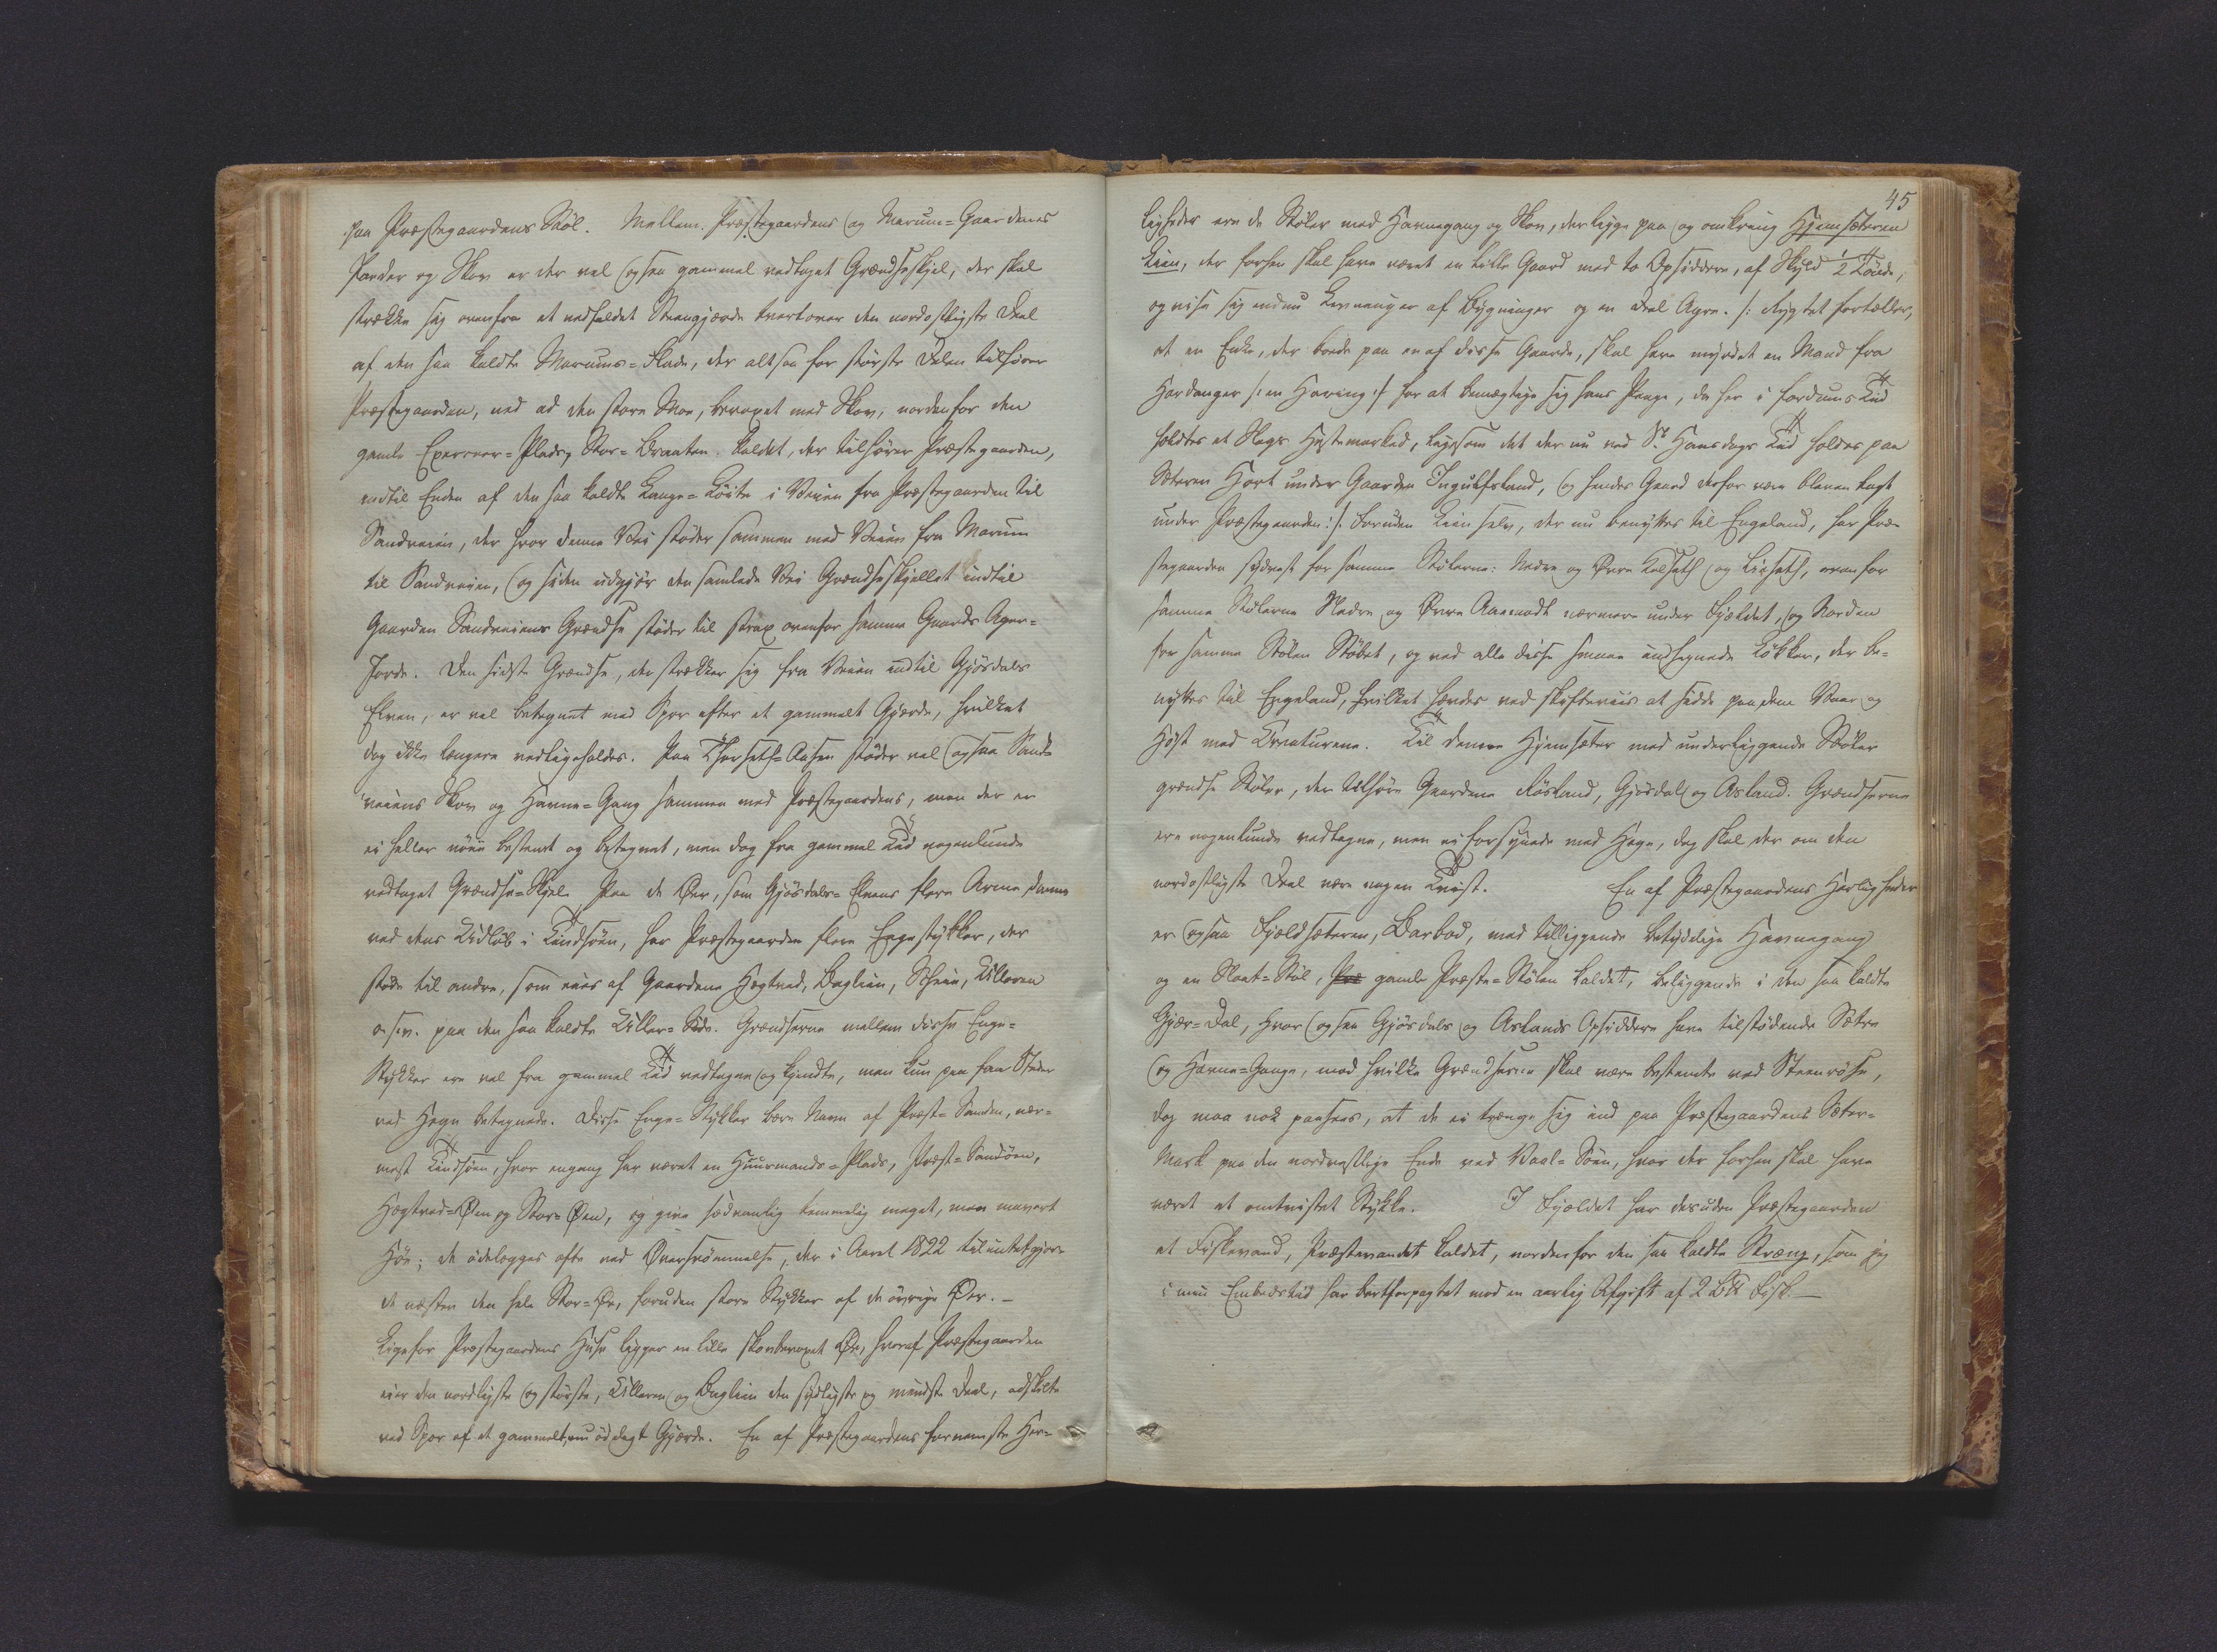 paa Præstegaardens Støl. Mellem Præstegaardens og Marum=Gaardenes
Jorder og Skov er der vel ogsaa gammel vedtaget Grændseskjel, der skal
strække sig ovenfra et nedfaldet Steengjærde tvertover den nordostligste Deel
af den saa kaldte Marums=Slaate, der altsaa for største Delen tilhører
Præstegaarden, ned ad den store Moe, bevoxet med Skov, nordenfor den
gamle Exerceer=Plads, Stor=Braaten kaldet, der tilhører Præstegaarden,
indtil Enden af den saa kaldte Lange=Løite i Veien fra Præstegaarden til
Sandveien, der hvor denne Vei støder sammen med Veien fra Marum
til Sandveien, og siden udgjør den samlede Vei Grændseskjellet indtil
Gaarden Sandveiens Grændse støder til strax ovenfor samme Gaards Ager=
Jorde. Den sidste Grændse, der strækker sig fra Veien indtil Gjøsdals
Elven, er vel betegnet med Spor efter et gammelt Gjærde, hvilket
dog ikke længere vedligeholdes. Paa Thorseth=Aasen støder vel ogsaa Sand=
veiens Skov og Havne=Gang sammen med Præstegaardens, men der er
ei heller nøie bestemt og betegnet, men dog fra gammel Tid nogenlunde
vedtaget Grændse=Skjel. Paa de Øer, som Gjøsdals=Elvens flere Arme danne
ved dens Udløb i Tindsøen, har Præstegaarden flere Engestykker, der
støde til andre, som eies af Gaardene Hægtved, Baglien, Scheie, Ulleren
o.s.v. paa den saa kaldte Uller=Øde. Grændserne mellem disse Enge=
Stykker ere vel fra gammel Tid vedtagne og kjendte, men kun paa faa Steder
ved Hegn betegnede. Disse Enge=Stykker bære Navn af Præst=Sanden, nær=
mest Tindsøen, hvor engang har været en Huusmands=Plads, Præst=Sandøen,
Hægtved=Øen og Stor=Øen, og give sædvanlig temmelig meget, men mavert
Høe; de ødelægges ofte ved Oversvømmelse, der i Aaret 1822 tilintetgjorde
de næsten den hele Stor=Øe, foruden store Stykker af de øvrige Øer. –
Ligefor Præstegaardens Huse ligger en lille skovbevoxet Øe, hvoraf Præstegaarden
eier den nordligste og største, Ulleren og Baglien den sydligste og mindste Deel, adskilte
ved Spor af et gammelt, nu ødelagt Gjærde. En af Præstegaardens fornemste Her=
45
ligheder ere de Støler med Havnegang og Skov, der ligge paa og omkring Hjemsæteren
Lien, der forhen skal have været en lille Gaard med to Opsiddere, af Skyld 1/2 Tønde,
og vise sig endnu Levninger af Bygninger og en Deel Agre. /: Rygtet fortæller,
at en Enke, der boede paa en af disse Gaarde, skal have myrdet en Mand fra
Hardanger /: en Haring :/ for at bemægtige sig hans Penge, da her i fordums Tid
holdtes et Slags Hestemarked, ligesom det der nu ved St Hansdags Tid holdes paa
Sæteren Hort under Gaarden Ingulfsland, og hendes Gaard derfor være bleven lagt
under Præstegaarden :/. Foruden Lien selv, der nu benyttes til Engeland, har Præ=
stegaarden sydvest for samme Stølerne: Nedre og Øvre Kolseth og Lieseth, ovenfor
samme Stølerne Nedre og Øvre Aamodt nærmere under Fjeldet, og Norden
for samme Stølen Støbet, og ved alle disse smaae indhegnede Løkker, der be=
nyttes til Engeland, hvilket hævdes ved skifteviis at sidde paa dem Vaar og
Høst med Creaturene. Til denne Hjemsæter med underliggende Støler
grændse Støler, der tilhøre Gaardene Røisland, Gjøsdal og Asland. Grændserne
ere nogenlunde vedtagne, men ei forsynede med Hegn, dog skal der om den
nordostligste Deel være nogen Tvist. En af Præstegaardens Herligheder
er ogsaa Fjeldsæteren, Barbod, med tilliggende betydelige Havnegang
og en Slaat=Støl, Præ gamle Præste=Stølen kaldet, beliggende i den saa kaldte
Gjær=Dal, hvor ogsaa Gjøsdals og Aslands Opsiddere have tilstødende Sætre
og Havne=Gange, mod hvilke Grændserne skal være bestemte ved Steenrøse,
dog maa nok paasees, at de ei trænge sig ind paa Præstegaardens Sæter=
Mark paa den nordvestlige Ende ved Vaal=Søen, hvor der forhen skal have
været et omtvistet Stykke. I Fjeldet har desuden Præstegaarden
et Fiskevand, Præstevandet kaldet, nordenfor den saa kaldte Stræng, som jeg
i min Embedstid har bortforpagtet mod en aarlig Afgift af 2 B℔ Fisk. –